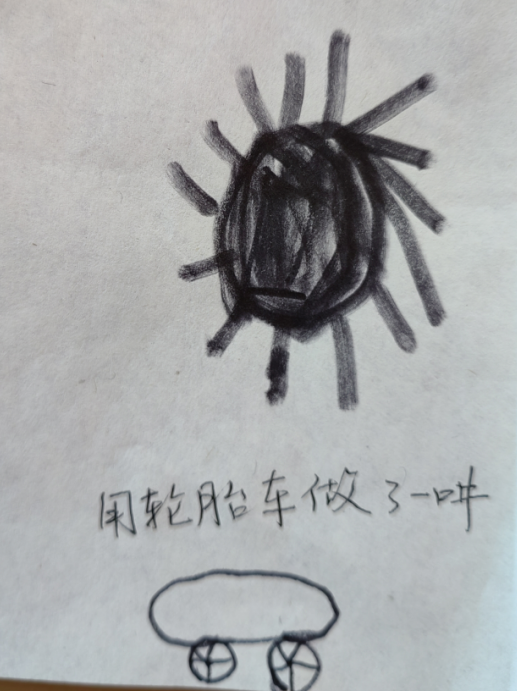 用轮胎车做了一哄